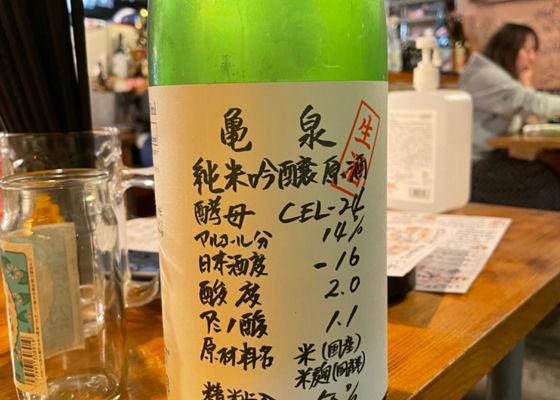 亀泉
生酒
純米吟醸原酒
酵母 CEL-24
アルコール分 14%
日本酒度 -16
酸度 2.0
アミノ酸 1.1
原材料名 米(国産)
米麹(国産米)